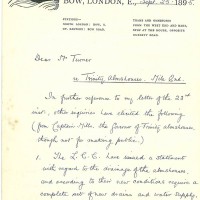 BOW, LONDON, E., Sept. 25 1895
STATIONS—
NORTH LONDON: BOW, &
GT. EASTERN: BOW ROAD.
TRAMS AND OMNIBUSES
FROM THE WEST END AND BANK,
PASS THE HOUSE, OPPOSITE
Dear Mr Turner
re Trinity Almshouses, Mile End.
In further reference to my letter of the 23rd
inst., other inquiries have elicited the following
(from Captain Mills, the Governor of Trinity almshouses
though not for making public)
1. The L.C.C. have issued a statement
with regard to the drainage of the almshouses,
and according to their new conditions require a
complete set of new drains and water supply.